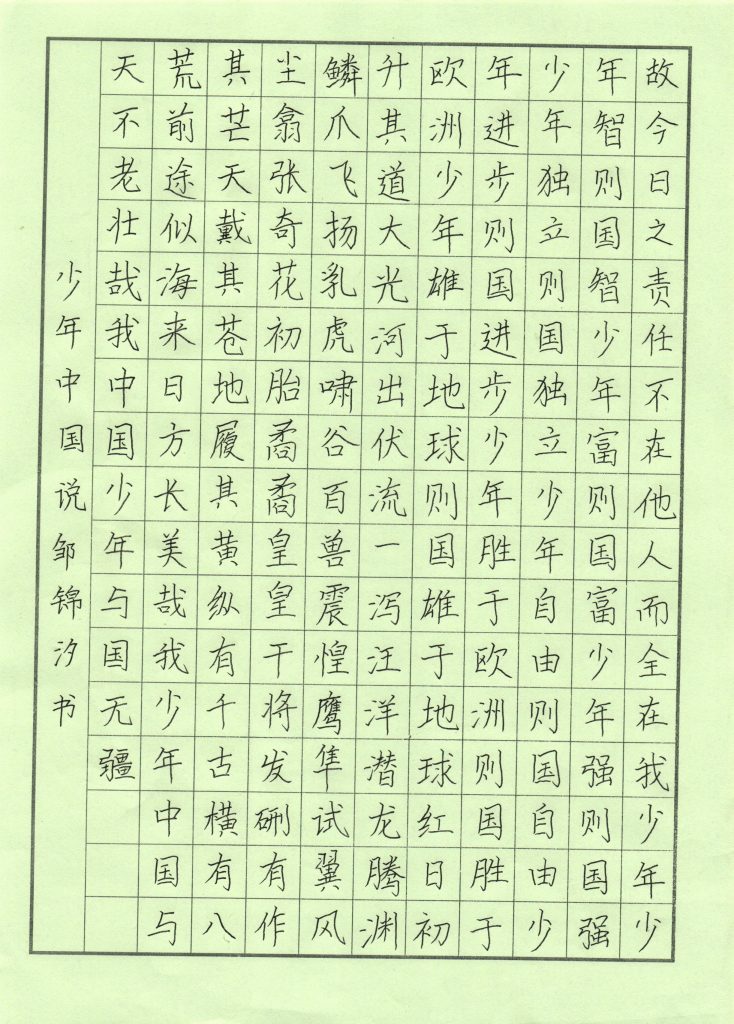 故今日之责任不在他人而全在我少年少
年智则国智少年富则国富少年强则国强
少年独立则国独立少年自由则国自由少
年进步则国进步少年胜于欧洲则国胜于
欧洲少年雄于地球则国雄于地球红日初
升其道大光河出伏流一泻汪洋潜龙腾渊
鳞爪飞扬乳虎啸谷百兽震惶鹰隼试翼风
尘翕张奇花初胎矞矞皇皇干将发硎有作
其芒天戴其苍地履其黄纵有千古横有八
荒前途似海来日方长美哉我少年中国与
天不老壮哉我中国少年与国无疆
少年中国说邹锦汐书